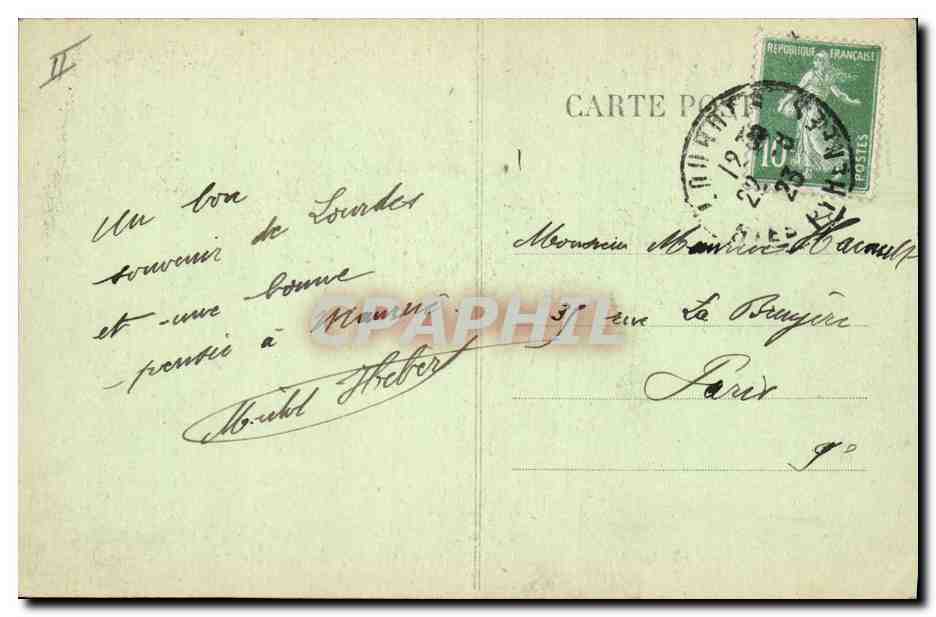 II
CARTE POST
REPUBLIQUE FRANÇAISE
10
POSTES
12
29
23
Un bon
souvenir de Lourdes
et une bonne
pensée à Maurice.
Michel Hébert
CPAPHIL
Monsieur Maurice
35 rue La Bruyère
Paris
9e